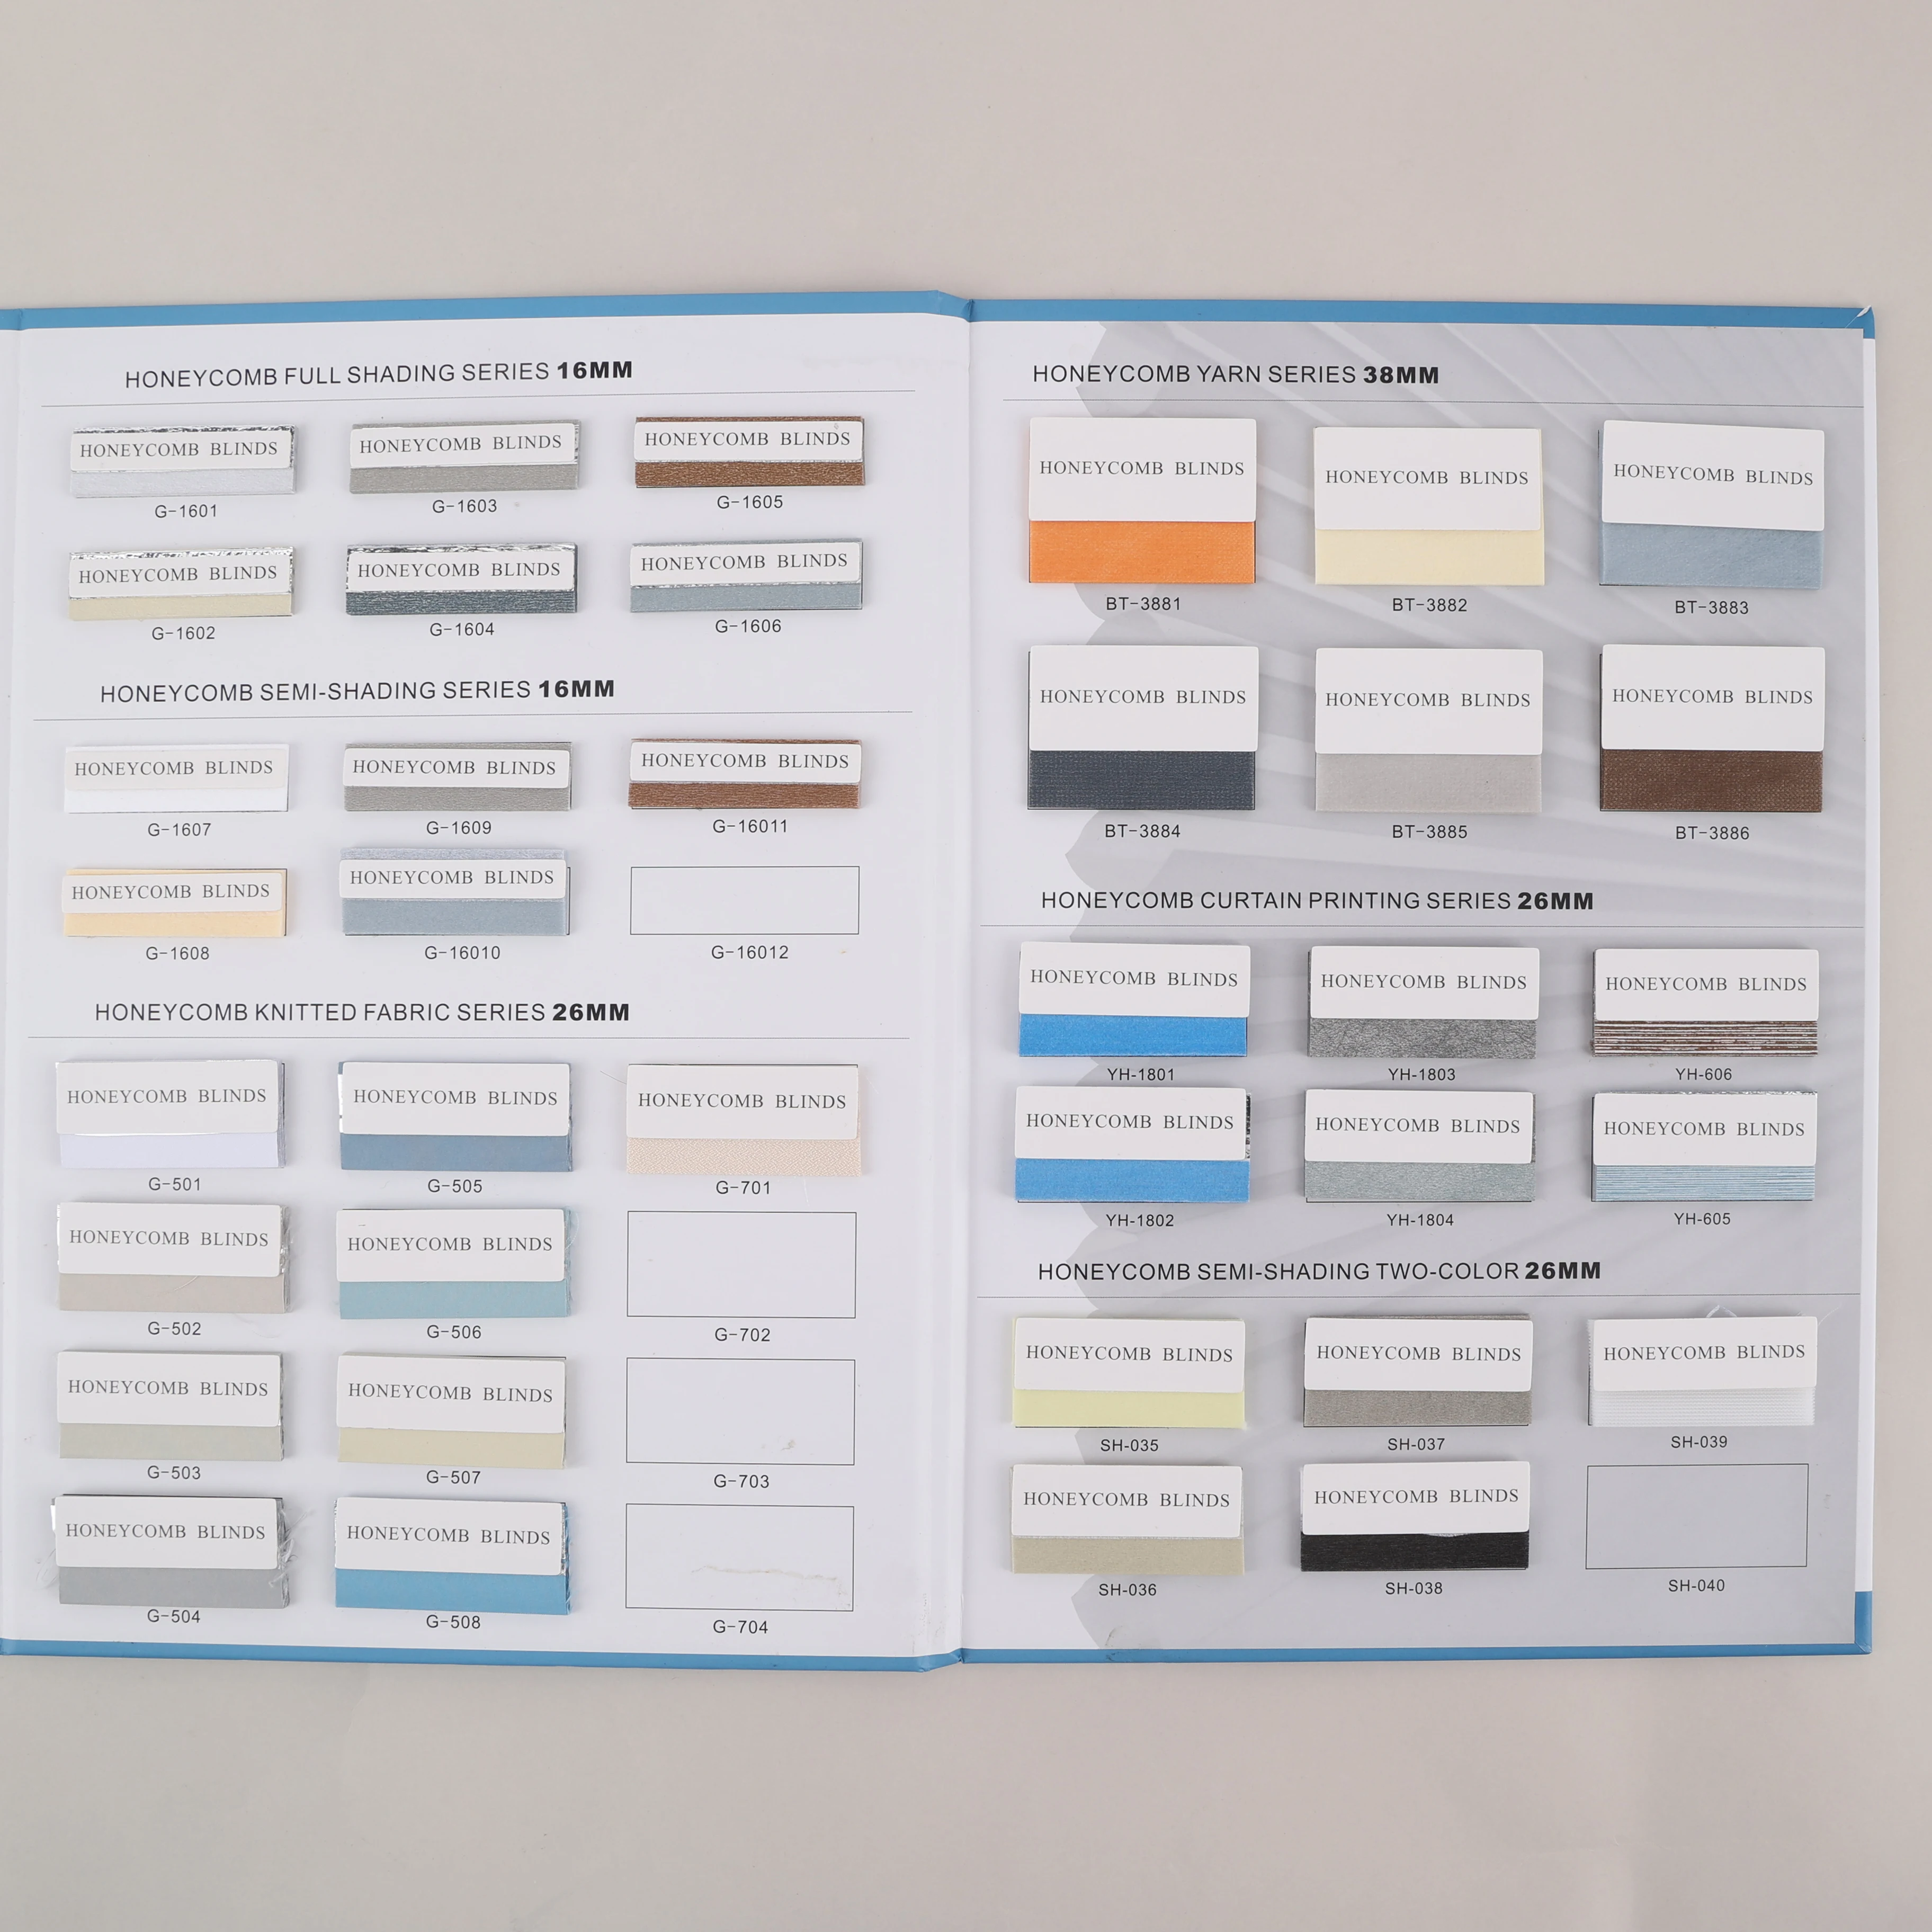 HONEYCOMB FULL SHADING SERIES 16MM
HONEYCOMB BLINDS
HONEYCOMB BLINDS
HONEYCOMB BLINDS
G-1601
G-1603
G-1605
HONEYCOMB BLINDS
HONEYCOMB BLINDS
HONEYCOMB BLINDS
G-1602
G-1604
G-1606
HONEYCOMB SEMI-SHADING SERIES 16MM
HONEYCOMB BLINDS
HONEYCOMB BLINDS
HONEYCOMB BLINDS
G-1607
G-1609
G-16011
HONEYCOMB BLINDS
HONEYCOMB BLINDS
G-1608
G-16010
G-16012
HONEYCOMB KNITTED FABRIC SERIES 26MM
HONEYCOMB BLINDS
HONEYCOMB BLINDS
HONEYCOMB BLINDS
G-501
G-505
G-701
HONEYCOMB BLINDS
HONEYCOMB BLINDS
G-502
G-506
G-702
HONEYCOMB BLINDS
HONEYCOMB BLINDS
G-503
G-507
G-703
HONEYCOMB BLINDS
HONEYCOMB BLINDS
G-504
G-508
G-704
HONEYCOMB YARN SERIES 38MM
HONEYCOMB BLINDS
HONEYCOMB BLINDS
HONEYCOMB BLINDS
BT-3881
BT-3882
BT-3883
HONEYCOMB BLINDS
HONEYCOMB BLINDS
HONEYCOMB BLINDS
BT-3884
BT-3885
BT-3886
HONEYCOMB CURTAIN PRINTING SERIES 26MM
HONEYCOMB BLINDS
HONEYCOMB BLINDS
HONEYCOMB BLINDS
YH-1801
YH-1803
YH-606
HONEYCOMB BLINDS
HONEYCOMB BLINDS
HONEYCOMB BLINDS
YH-1802
YH-1804
YH-605
HONEYCOMB SEMI-SHADING TWO-COLOR 26MM
HONEYCOMB BLINDS
HONEYCOMB BLINDS
HONEYCOMB BLINDS
SH-035
SH-037
SH-039
HONEYCOMB BLINDS
HONEYCOMB BLINDS
SH-036
SH-038
SH-040